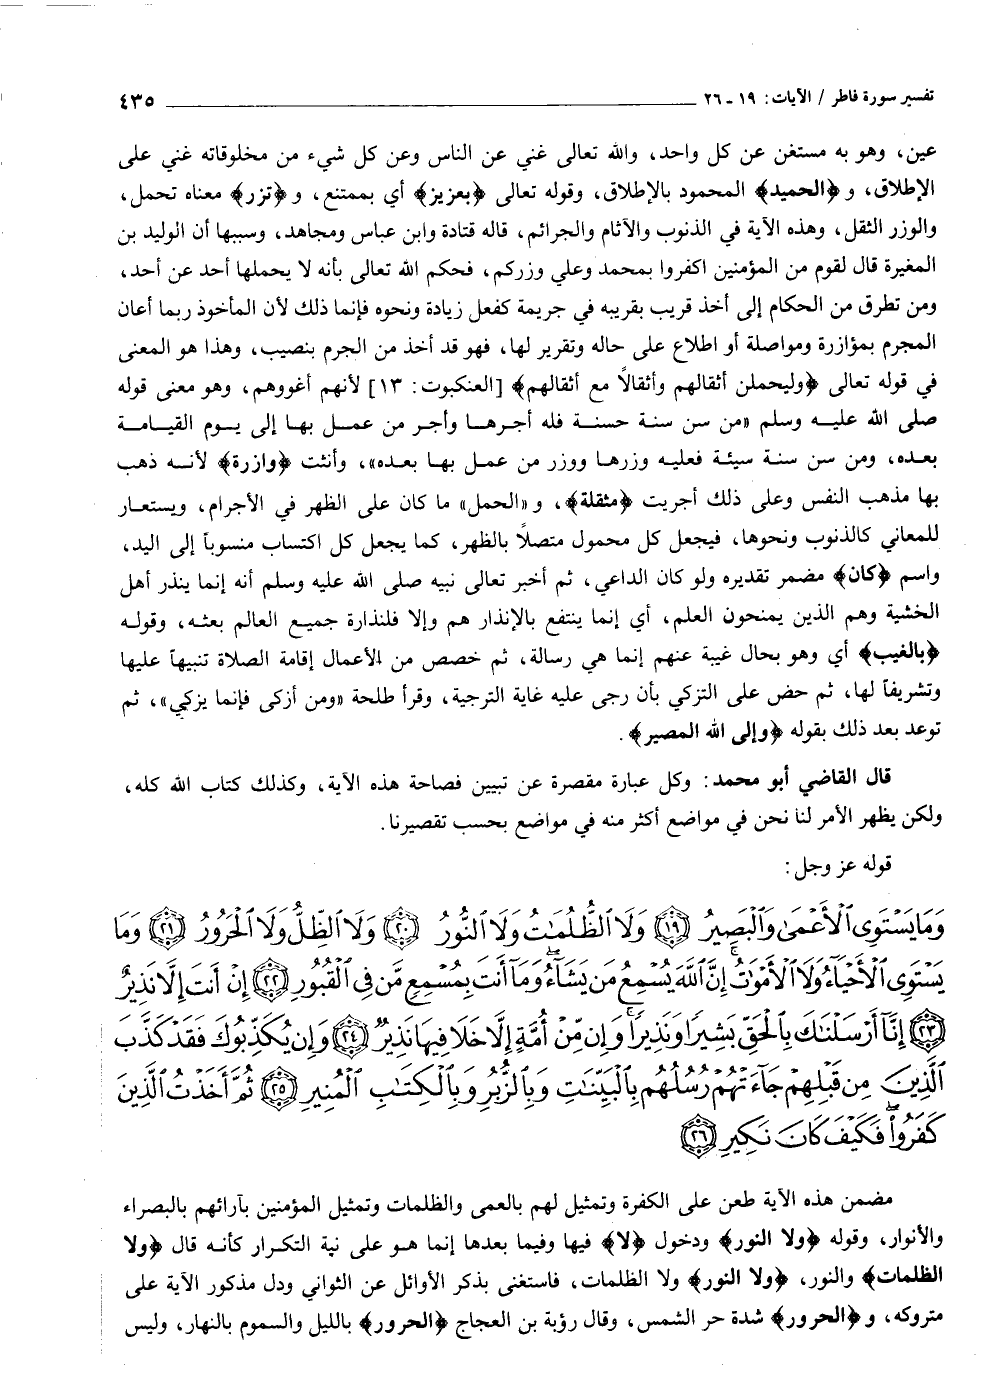 تفسير سورة فاطر / الآيات: ١٩ - ٢٦ ٤٣٥
عين، وهو به مستغن عن كل واحد، والله تعالى غني عن الناس وعن كل شيء من مخلوقاته غني على
الإطلاق، و ﴿الحميد﴾ المحمود بالإطلاق، وقوله تعالى ﴿بعزيز﴾ أي بممتنع، و ﴿تزر﴾ معناه تحمل،
والوزر الثقل، وهذه الآية في الذنوب والآثام والجرائم، قاله قتادة وابن عباس ومجاهد، وسببها أن الوليد بن
المغيرة قال لقوم من المؤمنين اكفروا بمحمد وعلي وزركم، فحكم الله تعالى بأنه لا يحملها أحد عن أحد،
ومن تطرق من الحكام إلى أخذ قريب بقريبه في جريمة كفعل زيادة ونحوه فإنما ذلك لأن المأخوذ ربما أعان
المجرم بمؤازرة ومواصلة أو اطلاع على حاله وتقرير لها، فهو قد أخذ من الجرم بنصيب، وهذا هو المعنى
في قوله تعالى ﴿وليحملن أثقالهم وأثقالاً مع أثقالهم﴾ [العنكبوت: ١٣] لأنهم أغووهم، وهو معنى قوله
صلى الله عليه وسلم «من سن سنة حسنة فله أجرها وأجر من عمل بها إلى يوم القيامة
بعده، ومن سن سنة سيئة فعليه وزرها ووزر من عمل بها بعده»، وأنثت ﴿وازرة﴾ لأنه ذهب
بها مذهب النفس وعلى ذلك أجريت ﴿مثقلة﴾، و «الحمل» ما كان على الظهر في الأجرام، ويستعار
للمعاني كالذنوب ونحوها، فيجعل كل محمول متصلاً بالظهر، كما يجعل كل اكتساب منسوباً إلى اليد،
واسم ﴿كان﴾ مضمر تقديره ولو كان الداعي، ثم أخبر تعالى نبيه صلى الله عليه وسلم أنه إنما ينذر أهل
الخشية وهم الذين يمنحون العلم، أي إنما ينتفع بالإنذار هم وإلا فلنذارة جميع العالم بعثه، وقوله
﴿بالغيب﴾ أي وهو بحال غيبة عنهم إنما هي رسالة، ثم خصص من الأعمال إقامة الصلاة تنبيهاً عليها
وتشريفاً لها، ثم حض على التزكي بأن رجى عليه غاية الترجية، وقرأ طلحة «ومن أزكى فإنما يزكي»، ثم
توعد بعد ذلك بقوله ﴿وإلى الله المصير﴾.
قال القاضي أبو محمد: وكل عبارة مقصرة عن تبيين فصاحة هذه الآية، وكذلك كتاب الله كله،
ولكن يظهر الأمر لنا نحن في مواضع أكثر منه في مواضع بحسب تقصيرنا.
قوله عز وجل:
وَمَا يَسْتَوِى ٱلْأَعْمَىٰ وَٱلْبَصِيرُ ﴿١٩﴾ وَلَا ٱلظُّلُمَٰتُ وَلَا ٱلنُّورُ ﴿٢٠﴾ وَلَا ٱلظِّلُّ وَلَا ٱلْحَرُورُ ﴿٢١﴾ وَمَا
يَسْتَوِى ٱلْأَحْيَآءُ وَلَا ٱلْأَمْوَٰتُ ۚ إِنَّ ٱللَّهَ يُسْمِعُ مَن يَشَآءُ ۖ وَمَآ أَنتَ بِمُسْمِعٍ مَّن فِى ٱلْقُبُورِ ﴿٢٢﴾ إِنْ أَنتَ إِلَّا نَذِيرٌ
﴿٢٣﴾ إِنَّآ أَرْسَلْنَٰكَ بِٱلْحَقِّ بَشِيرًا وَنَذِيرًا ۚ وَإِن مِّنْ أُمَّةٍ إِلَّا خَلَا فِيهَا نَذِيرٌ ﴿٢٤﴾ وَإِن يُكَذِّبُوكَ فَقَدْ كَذَّبَ
ٱلَّذِينَ مِن قَبْلِهِمْ جَآءَتْهُمْ رُسُلُهُم بِٱلْبَيِّنَٰتِ وَبِٱلزُّبُرِ وَبِٱلْكِتَٰبِ ٱلْمُنِيرِ ﴿٢٥﴾ ثُمَّ أَخَذْتُ ٱلَّذِينَ
كَفَرُوا۟ ۖ فَكَيْفَ كَانَ نَكِيرِ ﴿٢٦﴾
مضمن هذه الآية طعن على الكفرة وتمثيل لهم بالعمى والظلمات وتمثيل المؤمنين بآرائهم بالبصراء
والأنوار، وقوله ﴿ولا النور﴾ ودخول ﴿لا﴾ فيها وفيما بعدها إنما هو على نية التكرار كأنه قال ﴿ولا
الظلمات﴾ والنور، ﴿ولا النور﴾ ولا الظلمات، فاستغنى بذكر الأوائل عن الثواني ودل مذكور الآية على
متروكه، و ﴿الحرور﴾ شدة حر الشمس، وقال رؤبة بن العجاج ﴿الحرور﴾ بالليل والسموم بالنهار، وليس